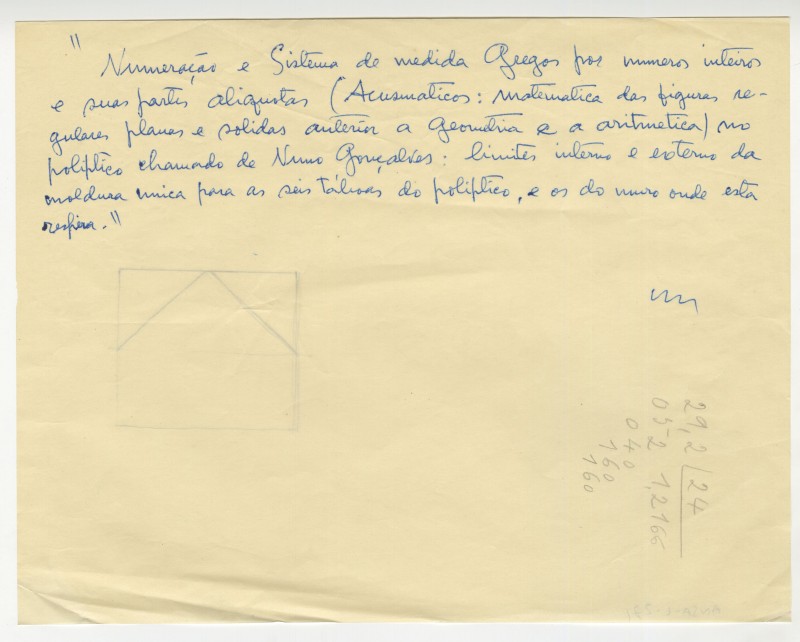 "
Numeração e Sistema de medida Gregos por numeros inteiros
e suas partes aliquotas (Acusmaticos: matematica das figuras re-
gulares planas e solidas anterior a Geometria e a aritmetica) no
poliptico chamado de Nuno Gonçalves: limites interno e externo da
moldura unica para as seis tábuas do poliptico, e os do muro onde esta
"
29,2 | 24
05-2 1,2166
040
160
160